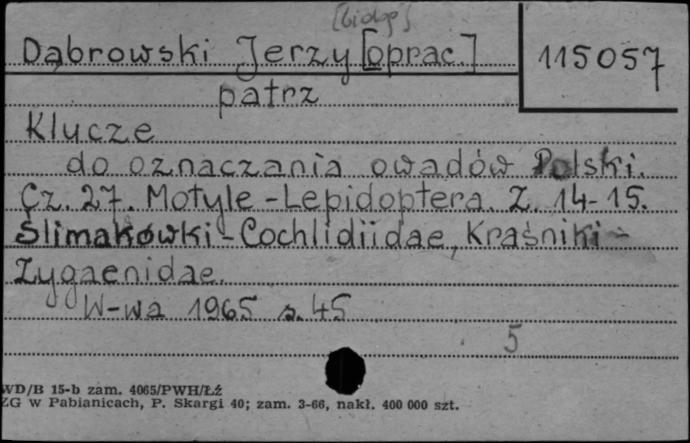 [biolog]
Dąbrowski Jerzy [oprac.] 115057
patrz
Klucze
do oznaczania owadów Polski.
Cz. 27. Motyle - Lepidoptera. Z. 14-15.
Ślimakówki - Cochlidiidae, Kraśniki -
Zygaenidae.
W-wa 1965 s. 45
5
WD/B 15-b zam. 4065/PWH/Łź
ZG w Pabianicach, P. Skargi 40; zam. 3-66, nakł. 400 000 szt.